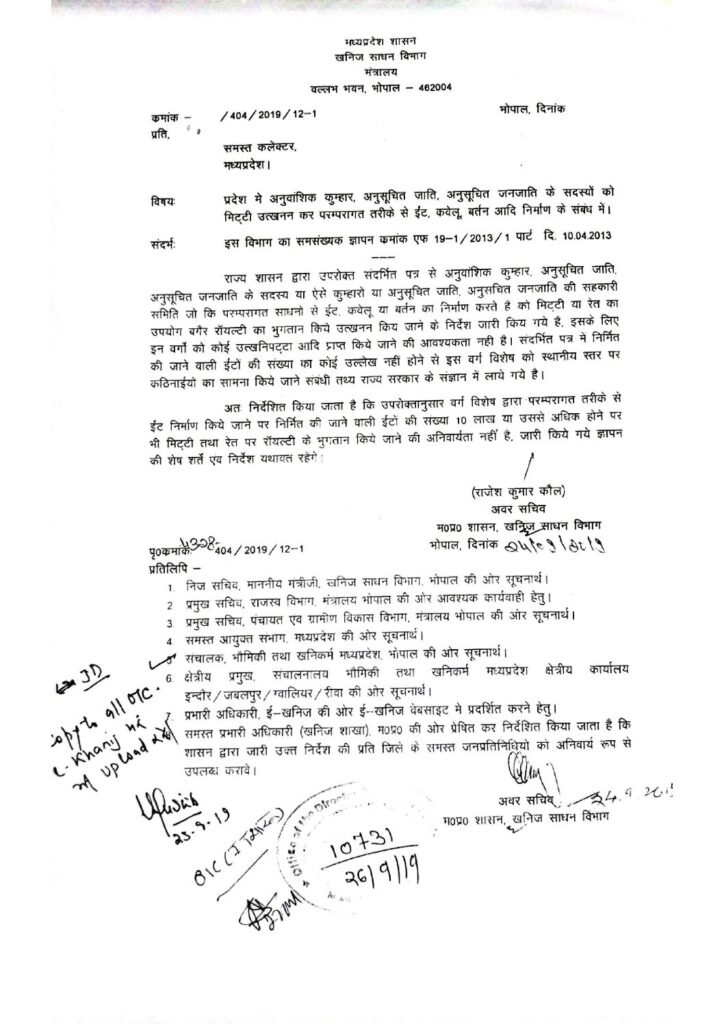 मध्यप्रदेश शासन
खनिज साधन विभाग
मंत्रालय
वल्लभ भवन, भोपाल – 462004
कमांक – /404/2019/12–1 भोपाल, दिनांक
प्रति,
समस्त कलेक्टर,
मध्यप्रदेश।
विषयः प्रदेश मे अनुवांशिक कुम्हार, अनुसूचित जाति, अनुसूचित जनजाति के सदस्यों को
मिट्टी उत्खनन कर परम्परागत तरीके से ईट, कवेलू, बर्तन आदि निर्माण के संबंध में।
संदर्भः इस विभाग का समसंख्यक ज्ञापन कमांक एफ 19–1/2013/1 पार्ट दि. 10.04.2013
राज्य शासन द्वारा उपरोक्त संदर्भित पत्र से अनुवांशिक कुम्हार, अनुसूचित जाति,
अनुसूचित जनजाति के सदस्य या ऐसे कुम्हारों या अनुसूचित जाति, अनुसचित जनजाति की सहकारी
समिति जो कि परम्परागत साधनो से ईट, कवेलू या बर्तन का निर्माण करते है को मिट्टी या रेत का
उपयोग बगैर रॉयल्टी का भुगतान किये उत्खनन किय जाने के निर्देश जारी किय गये है, इसके लिए
इन वर्गो को कोई उत्खनिपट्टा आदि प्राप्त किये जाने की आवश्यकता नही है। संदर्भित पत्र मे निर्मित
की जाने वाली ईटों की संख्या का कोई उल्लेख नहीं होने से इस वर्ग विशेष को स्थानीय स्तर पर
कठिनाईयों का सामना किये जाने संबंधी तथ्य राज्य सरकार के संज्ञान में लाये गये है।
अत निर्देशित किया जाता है कि उपरोक्तानुसार वर्ग विशेष द्वारा परम्परागत तरीके से
ईट निर्माण किये जाने पर निर्मित की जाने वाली ईटों की संख्या 10 लाख या उससे अधिक होने पर
भी मिट्टी तथा रेत पर रॉयल्टी के भुगतान किये जाने की अनिवार्यता नहीं है, जारी किये गये ज्ञापन
की शेष शर्ते एव निर्देश यथावत रहेगे।
(राजेश कुमार कौल)
अवर सचिव
म0प्र0 शासन, खनिज साधन विभाग
पृ0कमांक 4328 404/2019/12–1 भोपाल, दिनांक 24/09/2019
प्रतिलिपि –
1. निज सचिव, माननीय मंत्रीजी, खनिज साधन विभाग, भोपाल की ओर सूचनार्थ।
2 प्रमुख सचिव, राजस्व विभाग, मंत्रालय भोपाल की ओर आवश्यक कार्यवाही हेतु।
3. प्रमुख सचिव, पंचायत एव ग्रामीण विकास विभाग, मंत्रालय भोपाल की ओर सूचनार्थ।
4 समस्त आयुक्त सभाग, मध्यप्रदेश की ओर सूचनार्थ।
5 संचालक, भौमिकी तथा खनिकर्म मध्यप्रदेश, भोपाल की ओर सूचनार्थ।
6. क्षेत्रीय प्रमुख, संचालनालय भौमिकी तथा खनिकर्म मध्यप्रदेश क्षेत्रीय कार्यालय
इन्दौर/जबलपुर/ग्वालियर/रीवा की ओर सूचनार्थ।
7. प्रभारी अधिकारी, ई–खनिज की ओर ई–खनिज वेबसाइट मे प्रदर्शित करने हेतु।
समस्त प्रभारी अधिकारी (खनिज शाखा), म0प्र0 की ओर प्रेषित कर निर्देशित किया जाता है कि
शासन द्वारा जारी उक्त निर्देश की प्रति जिले के समस्त जनप्रतिनिधियों को अनिवार्य रूप से
उपलब्ध करावे।
JD
copy to all OIC.
e-Khanij
upload
23.9.19
अवर सचिव 24.9.2019
म0प्र0 शासन, खनिज साधन विभाग
OIC
Office of the Direct
10731
26/9/19